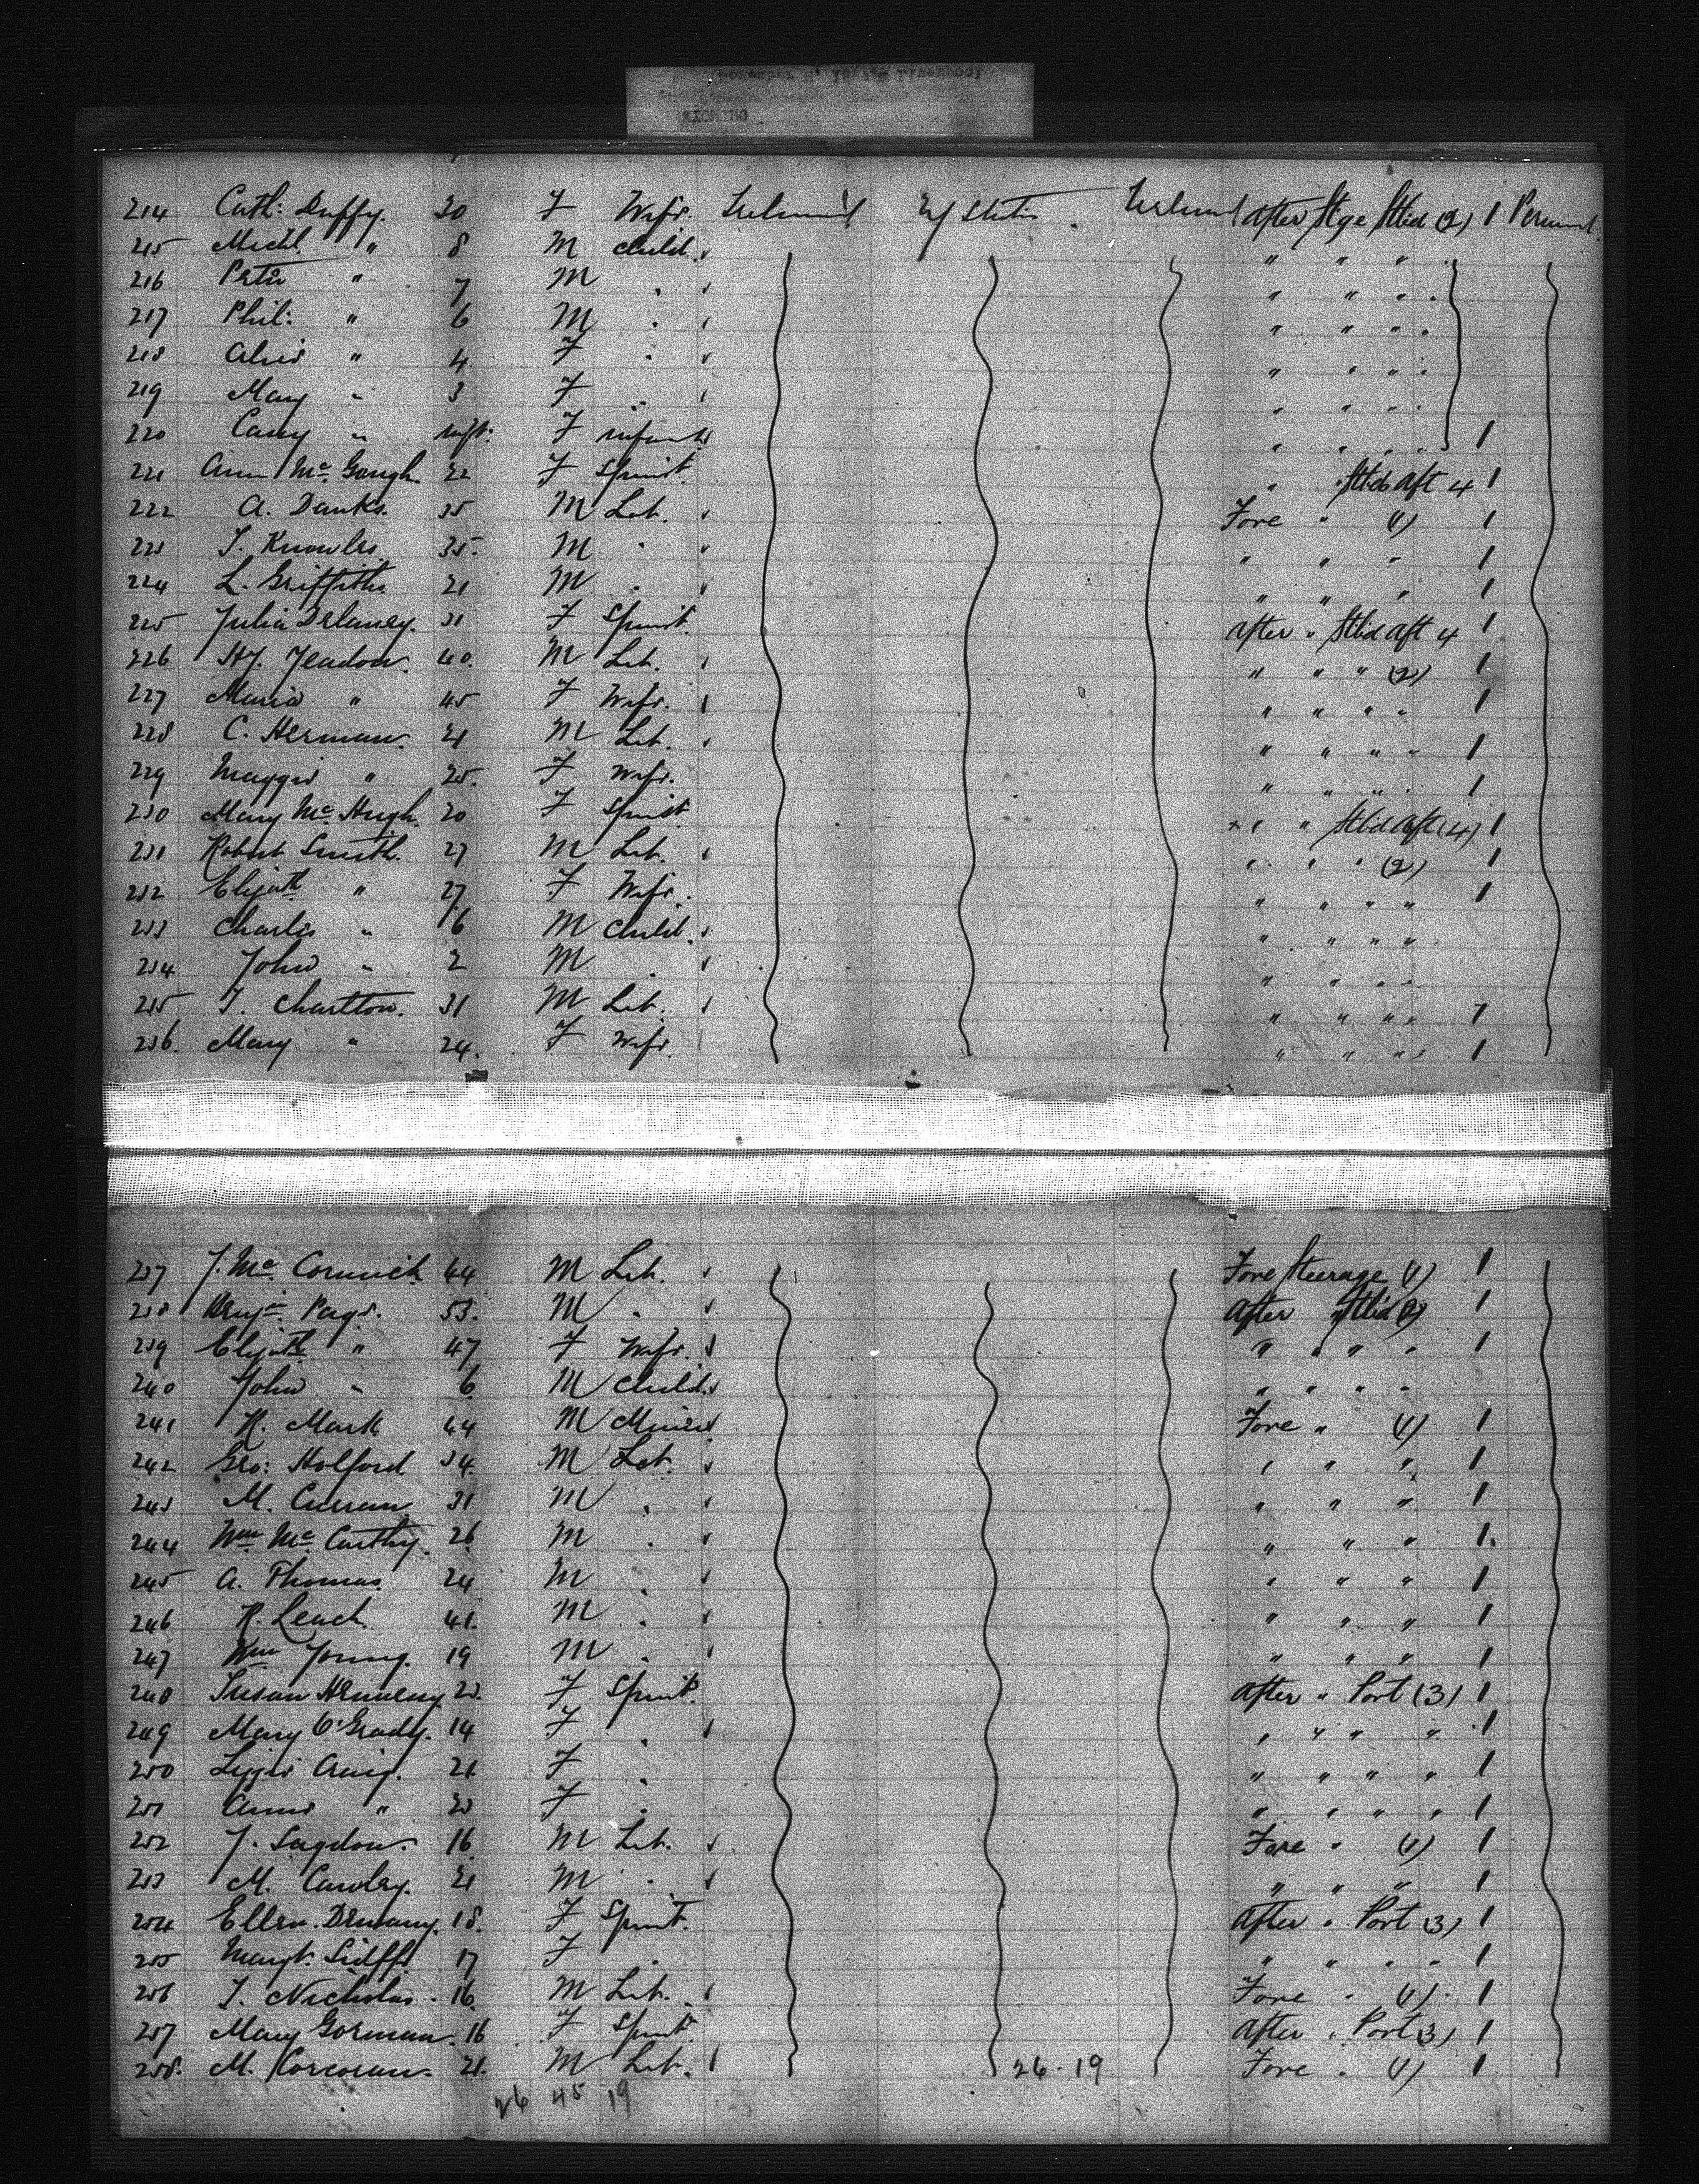 214 Cath: Duffy. 30 F Wife. Ireland U States. Ireland After Stge Stbd (2) 1 Permnt.
215 Michl. " 8 M Child. " " "
216 Peter " 7 M " " "
217 Phil: " 6 M " " "
218 " 4 F " " "
219 Mary " 3 F " " "
220 Casey " inft. F infant " " " 1
221 Ann McGough. 22 F Spinst. " Stbd Aft 4 1
222 A. Danks. 35 M Lab. Fore " (1) 1
223 T. Knowles 35. M " " " " 1
224 L. Griffiths 21 M " " " " 1
225 Julia Delaney. 31 F Spinst. After " Stbd Aft 4 1
226 Hy. Yeadon 40. M Lab. " " " (2) 1
227 Maria " 45 F Wife. " " " " 1
228 C. Herman. 21 M Lab. " " " " 1
229 Maggie " 25. F Wife. " " " " 1
230 Mary McHugh. 20 F Spinst " " Stbd Aft (4) 1
231 Robert Smith. 27 M Lab. " " " (2) 1
232 Elizath " 27 F Wife. " " " " 1
233 Charles " 6 M Child. " " " "
234 John " 2 M " " " " "
235 T. Charlton. 31 M Lab. " " " " 1
236. Mary " 24. F Wife. " " " " 1
237 J. McCormick 44 M Lab. Fore Steerage (1) 1
238 Benjn. Page. 53. M " After " Stbd (2) 1
239 Elizath " 47 F Wife. " " " " 1
240 John " 6 M Child. " " " "
241 R. Mark 44 M Miner Fore " (1) 1
242 Geo: Holford 34. M Lab. " " " 1
243 M. Curran 31 M " " " " 1
244 Wm McCarthy. 26 M " " " " 1
245 A. Thomas 24 M " " " " 1
246 R. Leach 41. M " " " " 1
247 Wm Young. 19 M " " " " 1
248 Susan 23. F Spinst. After " Port (3) 1
249 Mary O'Grady. 14 F " " " " " 1
250 Lizzie Craig. 21 F " " " " " 1
251 Annie " 23 F " " " " " 1
252 J. 16. M Lab. Fore " (1) 1
253 M. Cawley. 21 M " " " " 1
254 Ellen 18. F Spinst. After " Port (3) 1
255 Margt. 17 F " " " " " 1
256 T. Nicholas. 16. M Lab. Fore " (1) 1
257 Mary Gorman. 16 F Spinst. After " Port (3) 1
258. M. Corcoran. 21. M Lab. 26-19 Fore " (1) 1
26 45 19